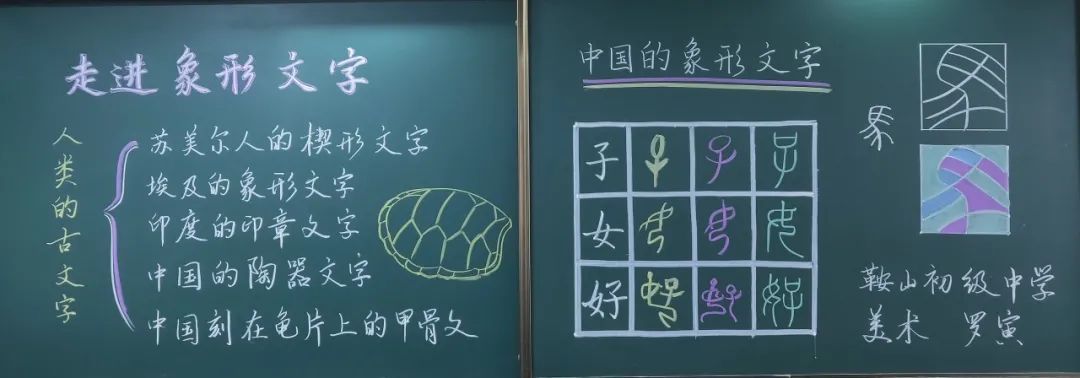 走进象形文字
人类的古文字
苏美尔人的楔形文字
埃及的象形文字
印度的印章文字
中国的陶器文字
中国刻在龟片上的甲骨文
中国的象形文字
子
女
好
鞍山初级中学
美术 罗寅